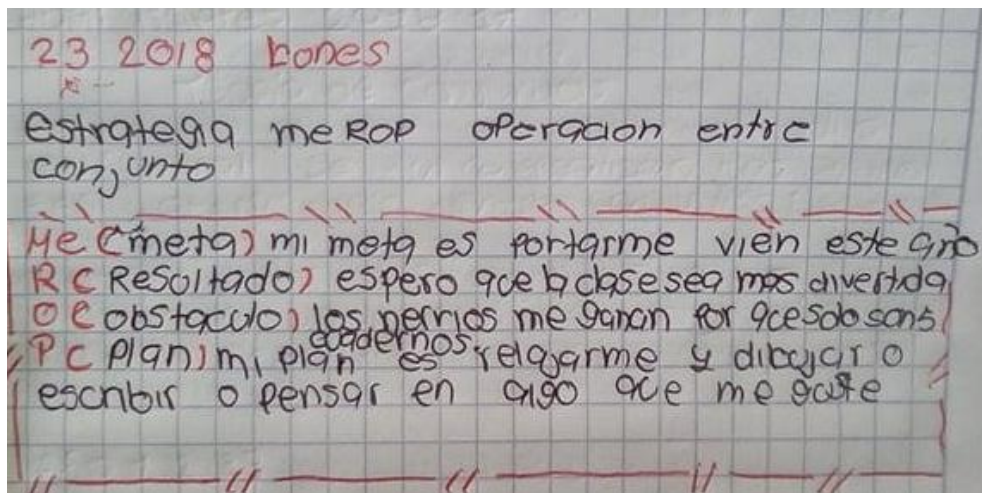 23 2018 bones
estrategia me ROP operacion entre
conjunto
Me (meta) mi meta es portarme vien este año
R (Resoltado) espero que la clase sea mas divertida
O (obstaculo) los nervios me ganan por que solo
ecadernos
P (Plan) mi plan es relajarme y dibujar o
escribir o pensar en algo que me guste